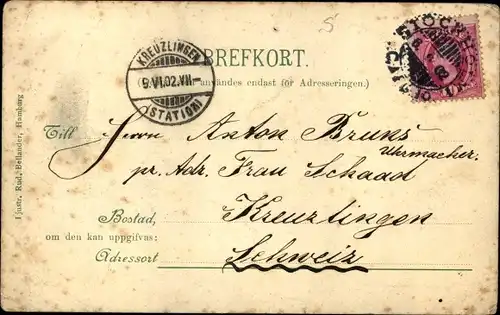 BREFKORT.
användes endast för Adresseringen.)
KREUZLINGEN
9.VI.02.VII-
(STATION)
STOCKH
Till Herrn Anton Bruns
Uhrmacher.
pr. Adr. Frau Schaad
Bostad, Kreuzlingen
om den kan uppgifvas:
Adressort Schweiz
Jllustr. Rud. Bellander, Hamburg
5